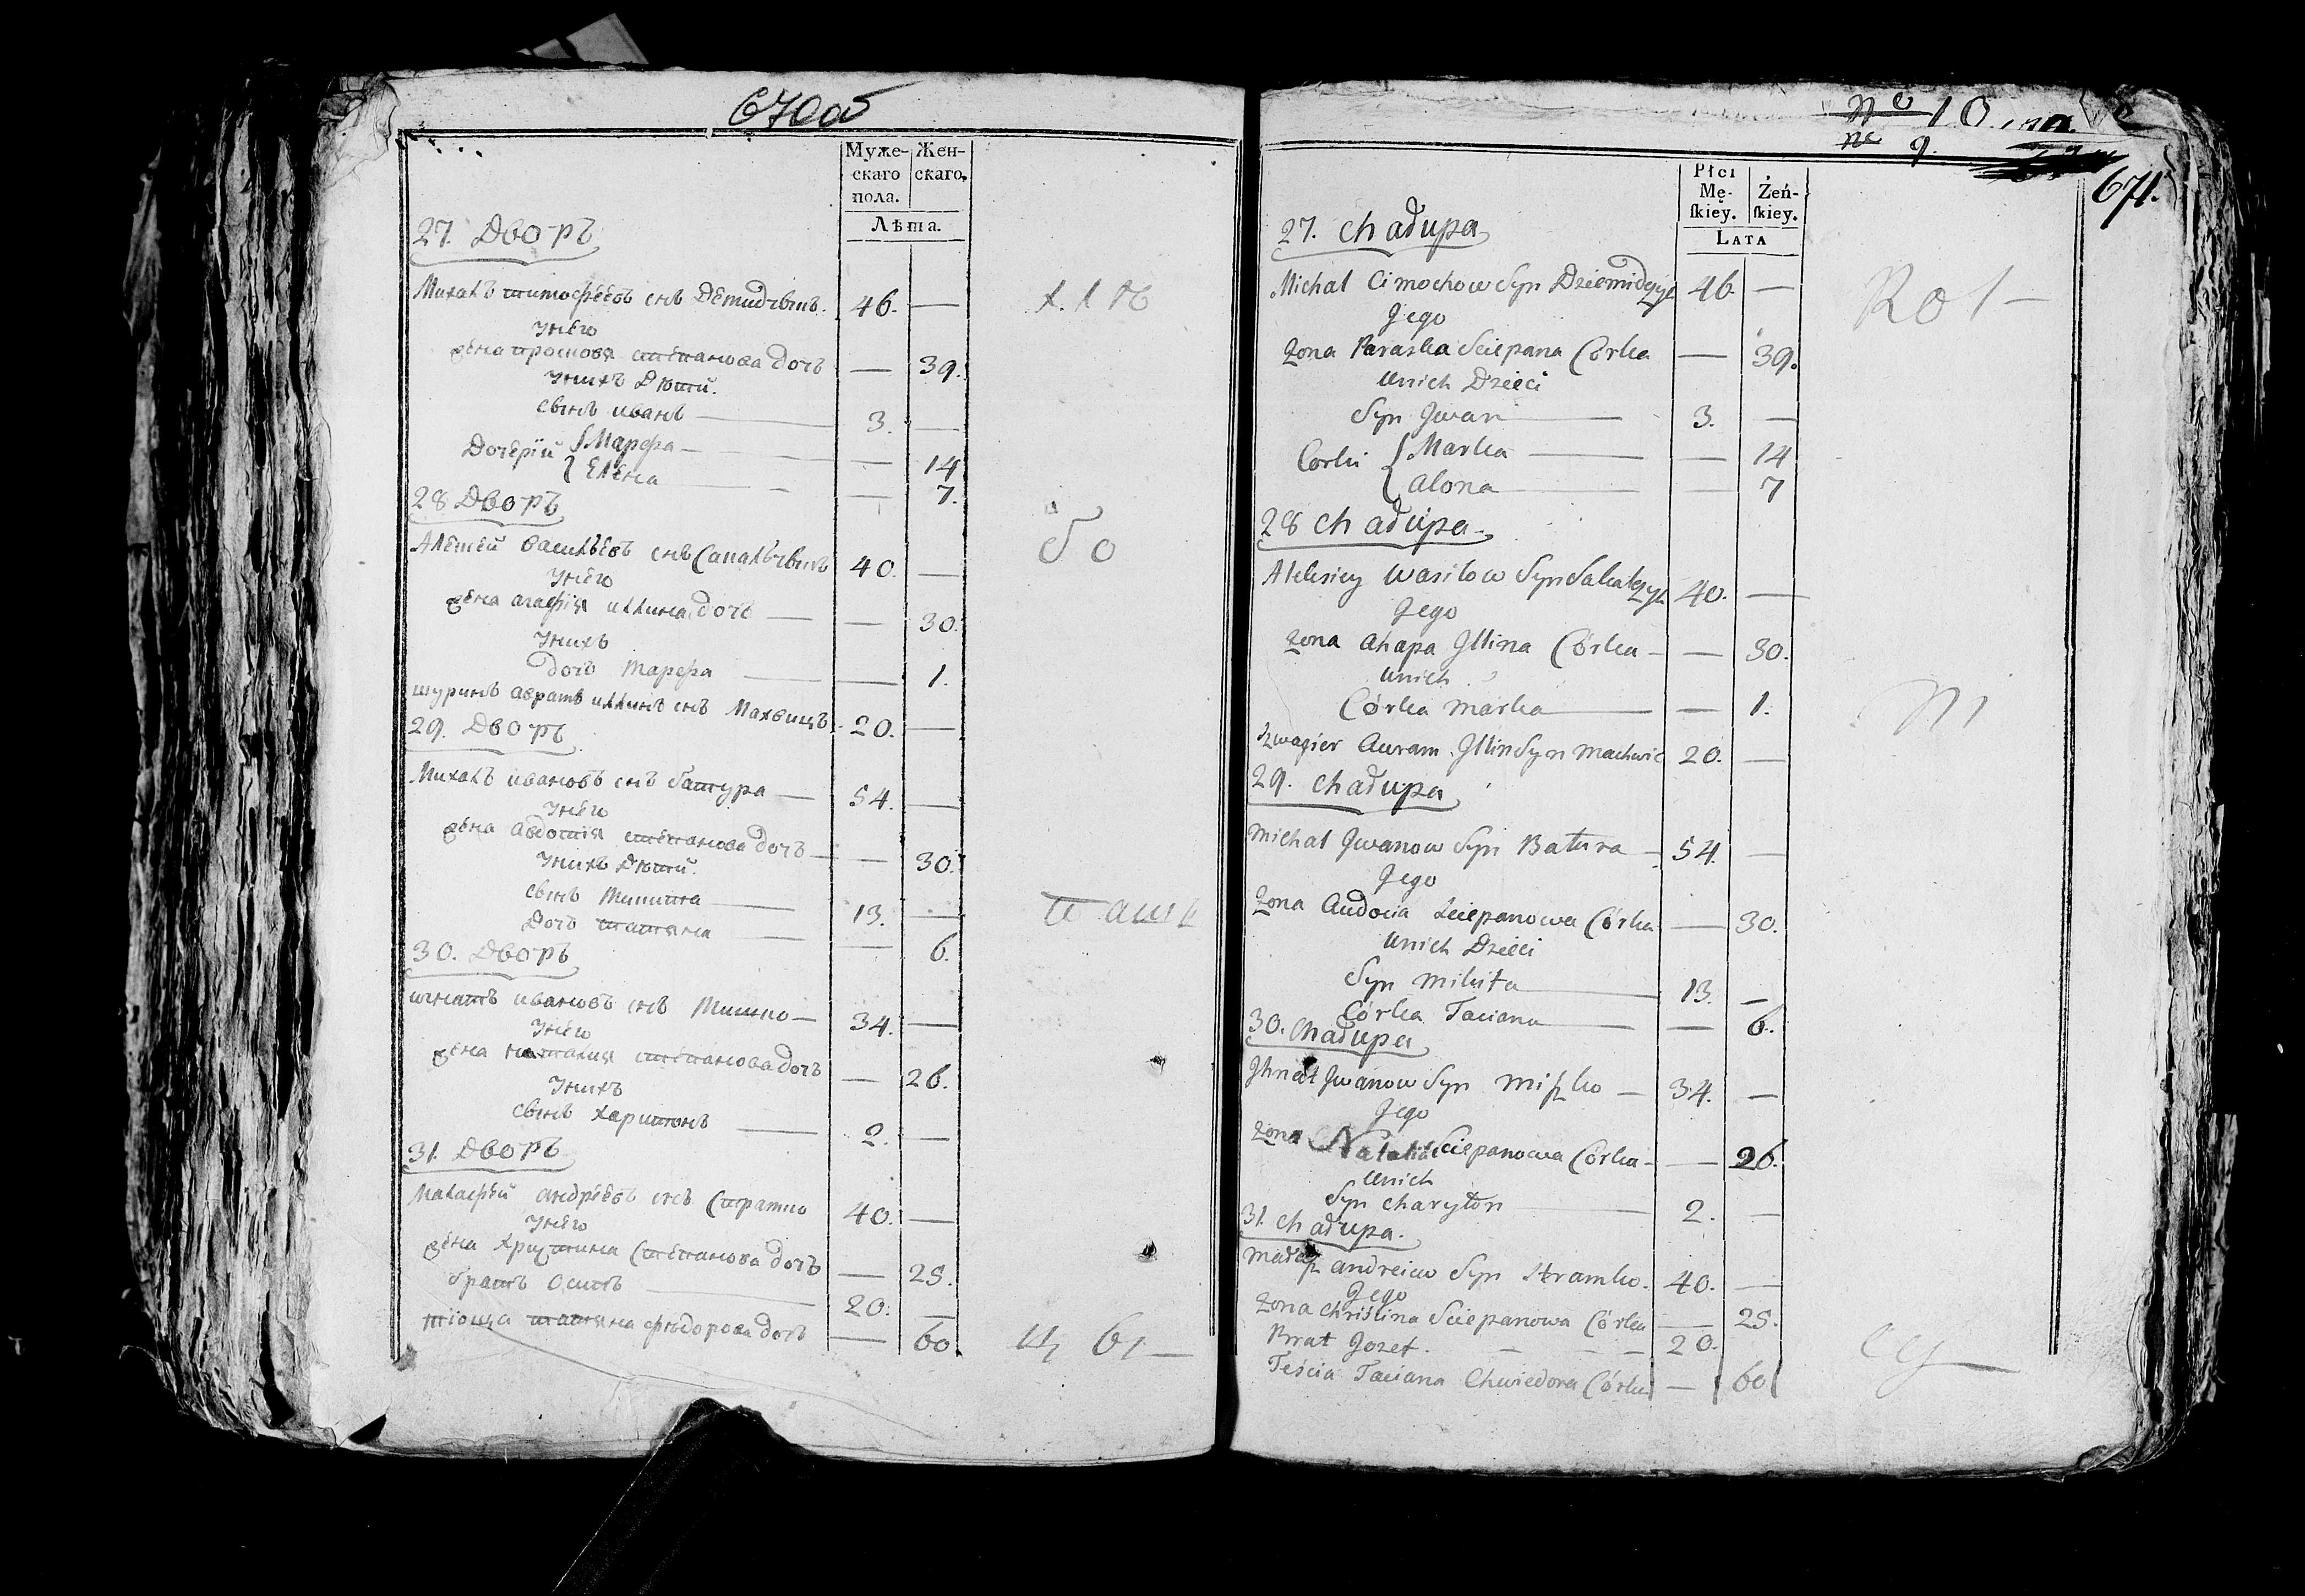 670об
Муже-
скаго
пола.
Жен-
скаго.
Лѣта.
27. Дворъ
Михалъ тимофѣевъ снъ Демидчикъ 46. —
Унего
жена просковя степанова дочь — 39.
Унихъ Дѣти.
сынъ иванъ — 3. —
Дочерїи { Марфа — — 14
{ Елена — — 7.
28 Дворъ
Алексей васильевъ снъ 40. —
Унего
жена агафія иллина дочь — — 30.
Унихъ
дочь марфа — — 1.
шуринъ аврамъ иллинъ снъ Махвицъ 20. —
29. Дворъ
Михалъ ивановъ снъ батура — 54. —
Унего
жена авдотія степанова дочь — — 30.
Унихъ Дѣти.
сынъ микита — 13. —
Дочь татяна — — 6.
30. Дворъ
игнатъ ивановъ снъ Мишко — 34. —
Унего
жена наталия степанова дочь — 26.
Унихъ
сынъ харитонъ — 2. —
31. Дворъ
Малафей андреевъ снъ Страмко 40. —
Унего
жена христина степанова дочь — 25.
братъ осипъ — 20. —
тіоща татяна фѣдорова дочь — 60.
№ 10
9.
671.
Płci
Mę-
skiey.
Żeń-
skiey.
LATA
27. Chałupa
Michał Cimochow Syn Dziemidczyk 46. —
Jego
żona Paraska Sciepana Córka — 39.
Unich Dzieci
Syn Jwan — 3. —
Corki { Marka — — 14
{ alona — — 7
28 Chałupa
Aleksiey Wasilow Syn Sakalczyk 40. —
Jego
żona ahapa Jllina Córka — — 30.
Unich
Córka marka — — 1.
szwagier Auram Jllin Syn Machwic 20. —
29. Chałupa
Michał Jwanow Syn Batura — 54. —
Jego
żona Audocia Sciepanowa Córka — 30.
Unich Dzieci
Syn Mikita — 13. —
Córka Taciana — — 6.
30. Chałupa
Jhnat Jwanow Syn Miszko — 34. —
Jego
żona Natalia Sciepanowa Córka — — 26.
Unich
Syn Charyton — 2. —
31. Chałupa.
andreiew Syn Stramko. 40. —
Jego
żona Christina Sciepanowa Córka — 25.
Brat Jozef. — — — 20.
Teścia Taciana Chwiedora Córka — 60